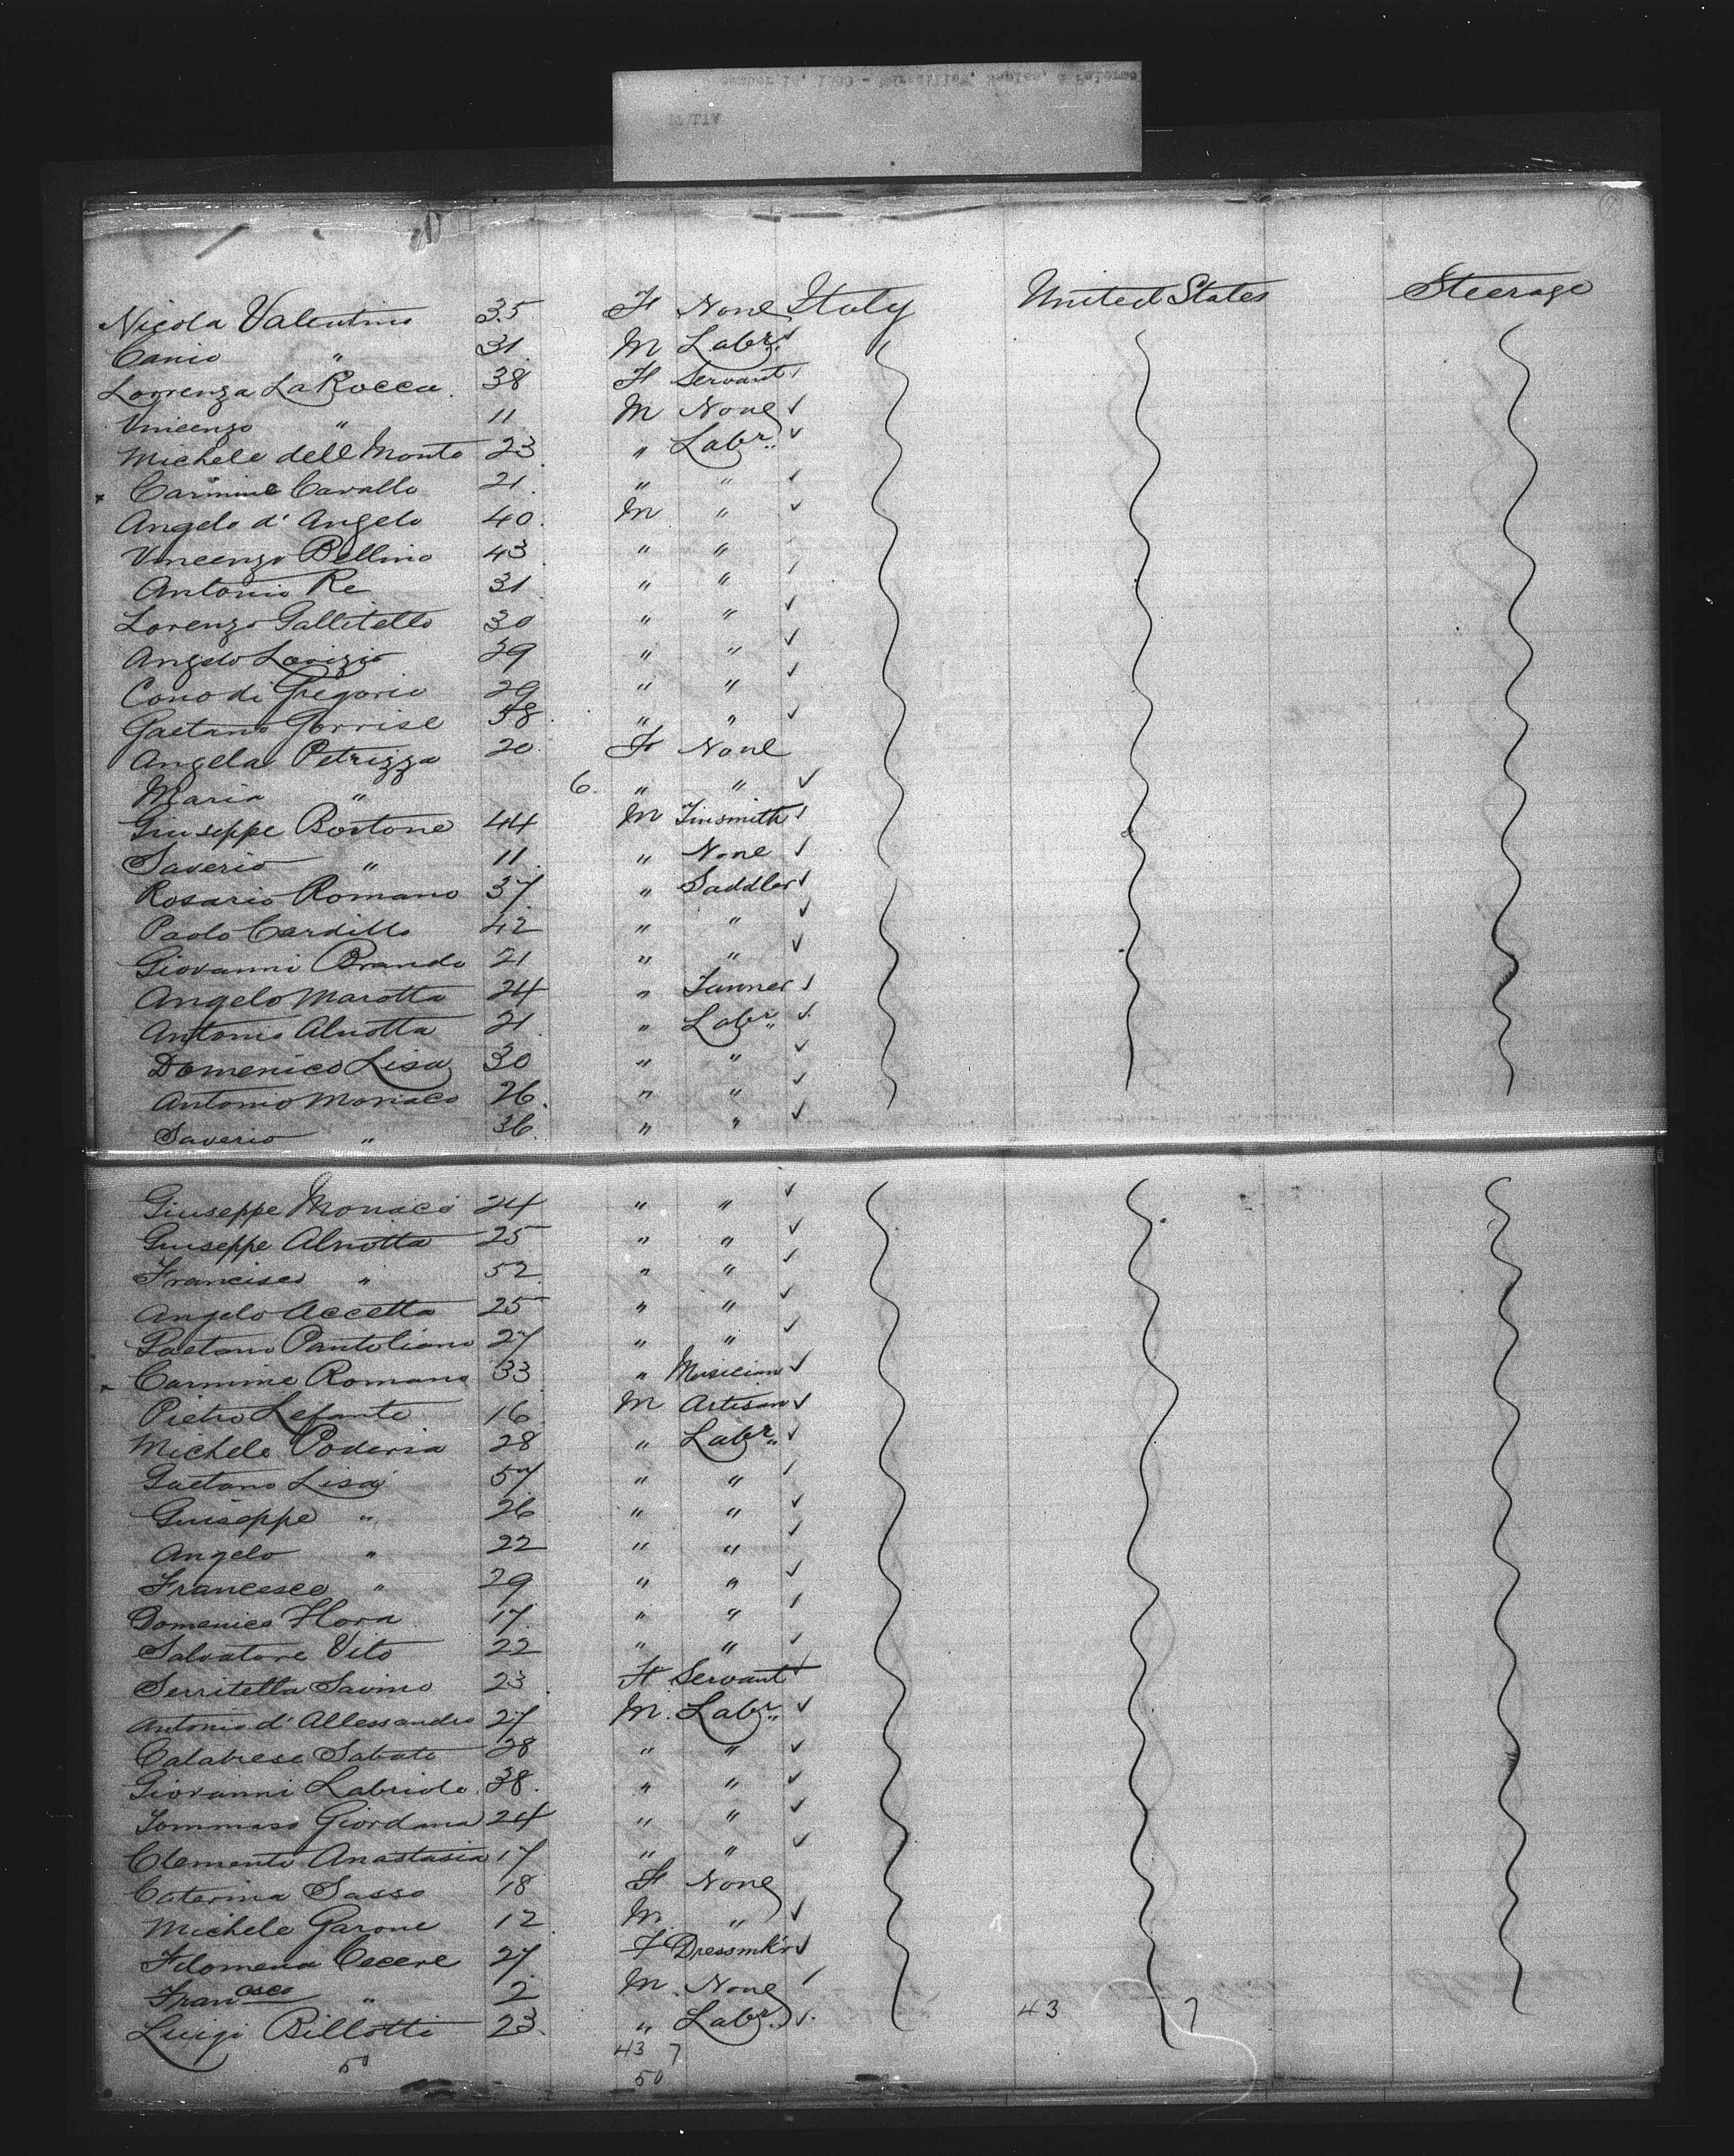 Nicola Valentino 35 F None Italy United States Steerage
Canio " 31 M Labr.
Lorrenza LaRocca 38 F Servant
Vincenzo " 11 M None
Michele dell Monte 23 " Labr.
Carmine Cavallo 21 " "
Angelo d'Angelo 40 M "
Vincenzo Bellino 43 " "
Antonio Re 31 " "
Lorenzo Gallitello 30 " "
Angelo 29 " "
Cono di Gregorio 29 " "
Gaetano Gorrise 38 " "
Angela Petrizzo 20 F None
Maria " 6 " "
Giuseppe Bortone 44 M Tinsmith
Saverio " 11 " None
Rosario Romano 37 " Saddler
Paolo Cardillo 42 " "
Giovanni Brando 21 " "
Angelo Marotta 24 " Tanner
Antonio Aluotta 21 " Labr.
Domenico Lisa 30 " "
Antonio Monaco 26 " "
Saverio " 36 " "
Giuseppe Monaco 24 " "
Giuseppe Aluotta 25 " "
Francisco " 52 " "
Angelo Accetta 25 " "
Gaetano Pantoliano 27 " "
Carmine Romano 33 " Musician
Pietro Lefante 16 M Artisan
Michele Poderia 28 " Labr.
Gaetano Lisa 57 " "
Giuseppe " 26 " "
Angelo " 22 " "
Francesco " 29 " "
Domenico Flora 17 " "
Salvatore Vito 22 " "
Serritella Savino 23 F Servant
Antonio d'Allessandro 27 M. Labr.
Calabrese Sabato 28 " "
Giovanni Labriola 38 " "
Tommaso Giordana 24 " "
Clemente Anastasia 17 " "
Caterina Sasso 18 F None
Michele Garone 12 M. "
Filomena Cecere 27 F Dressmk'r
Francesco " 2 M. None
Luigi Billotti 23 " Labr. 43 7
50 43 7
50